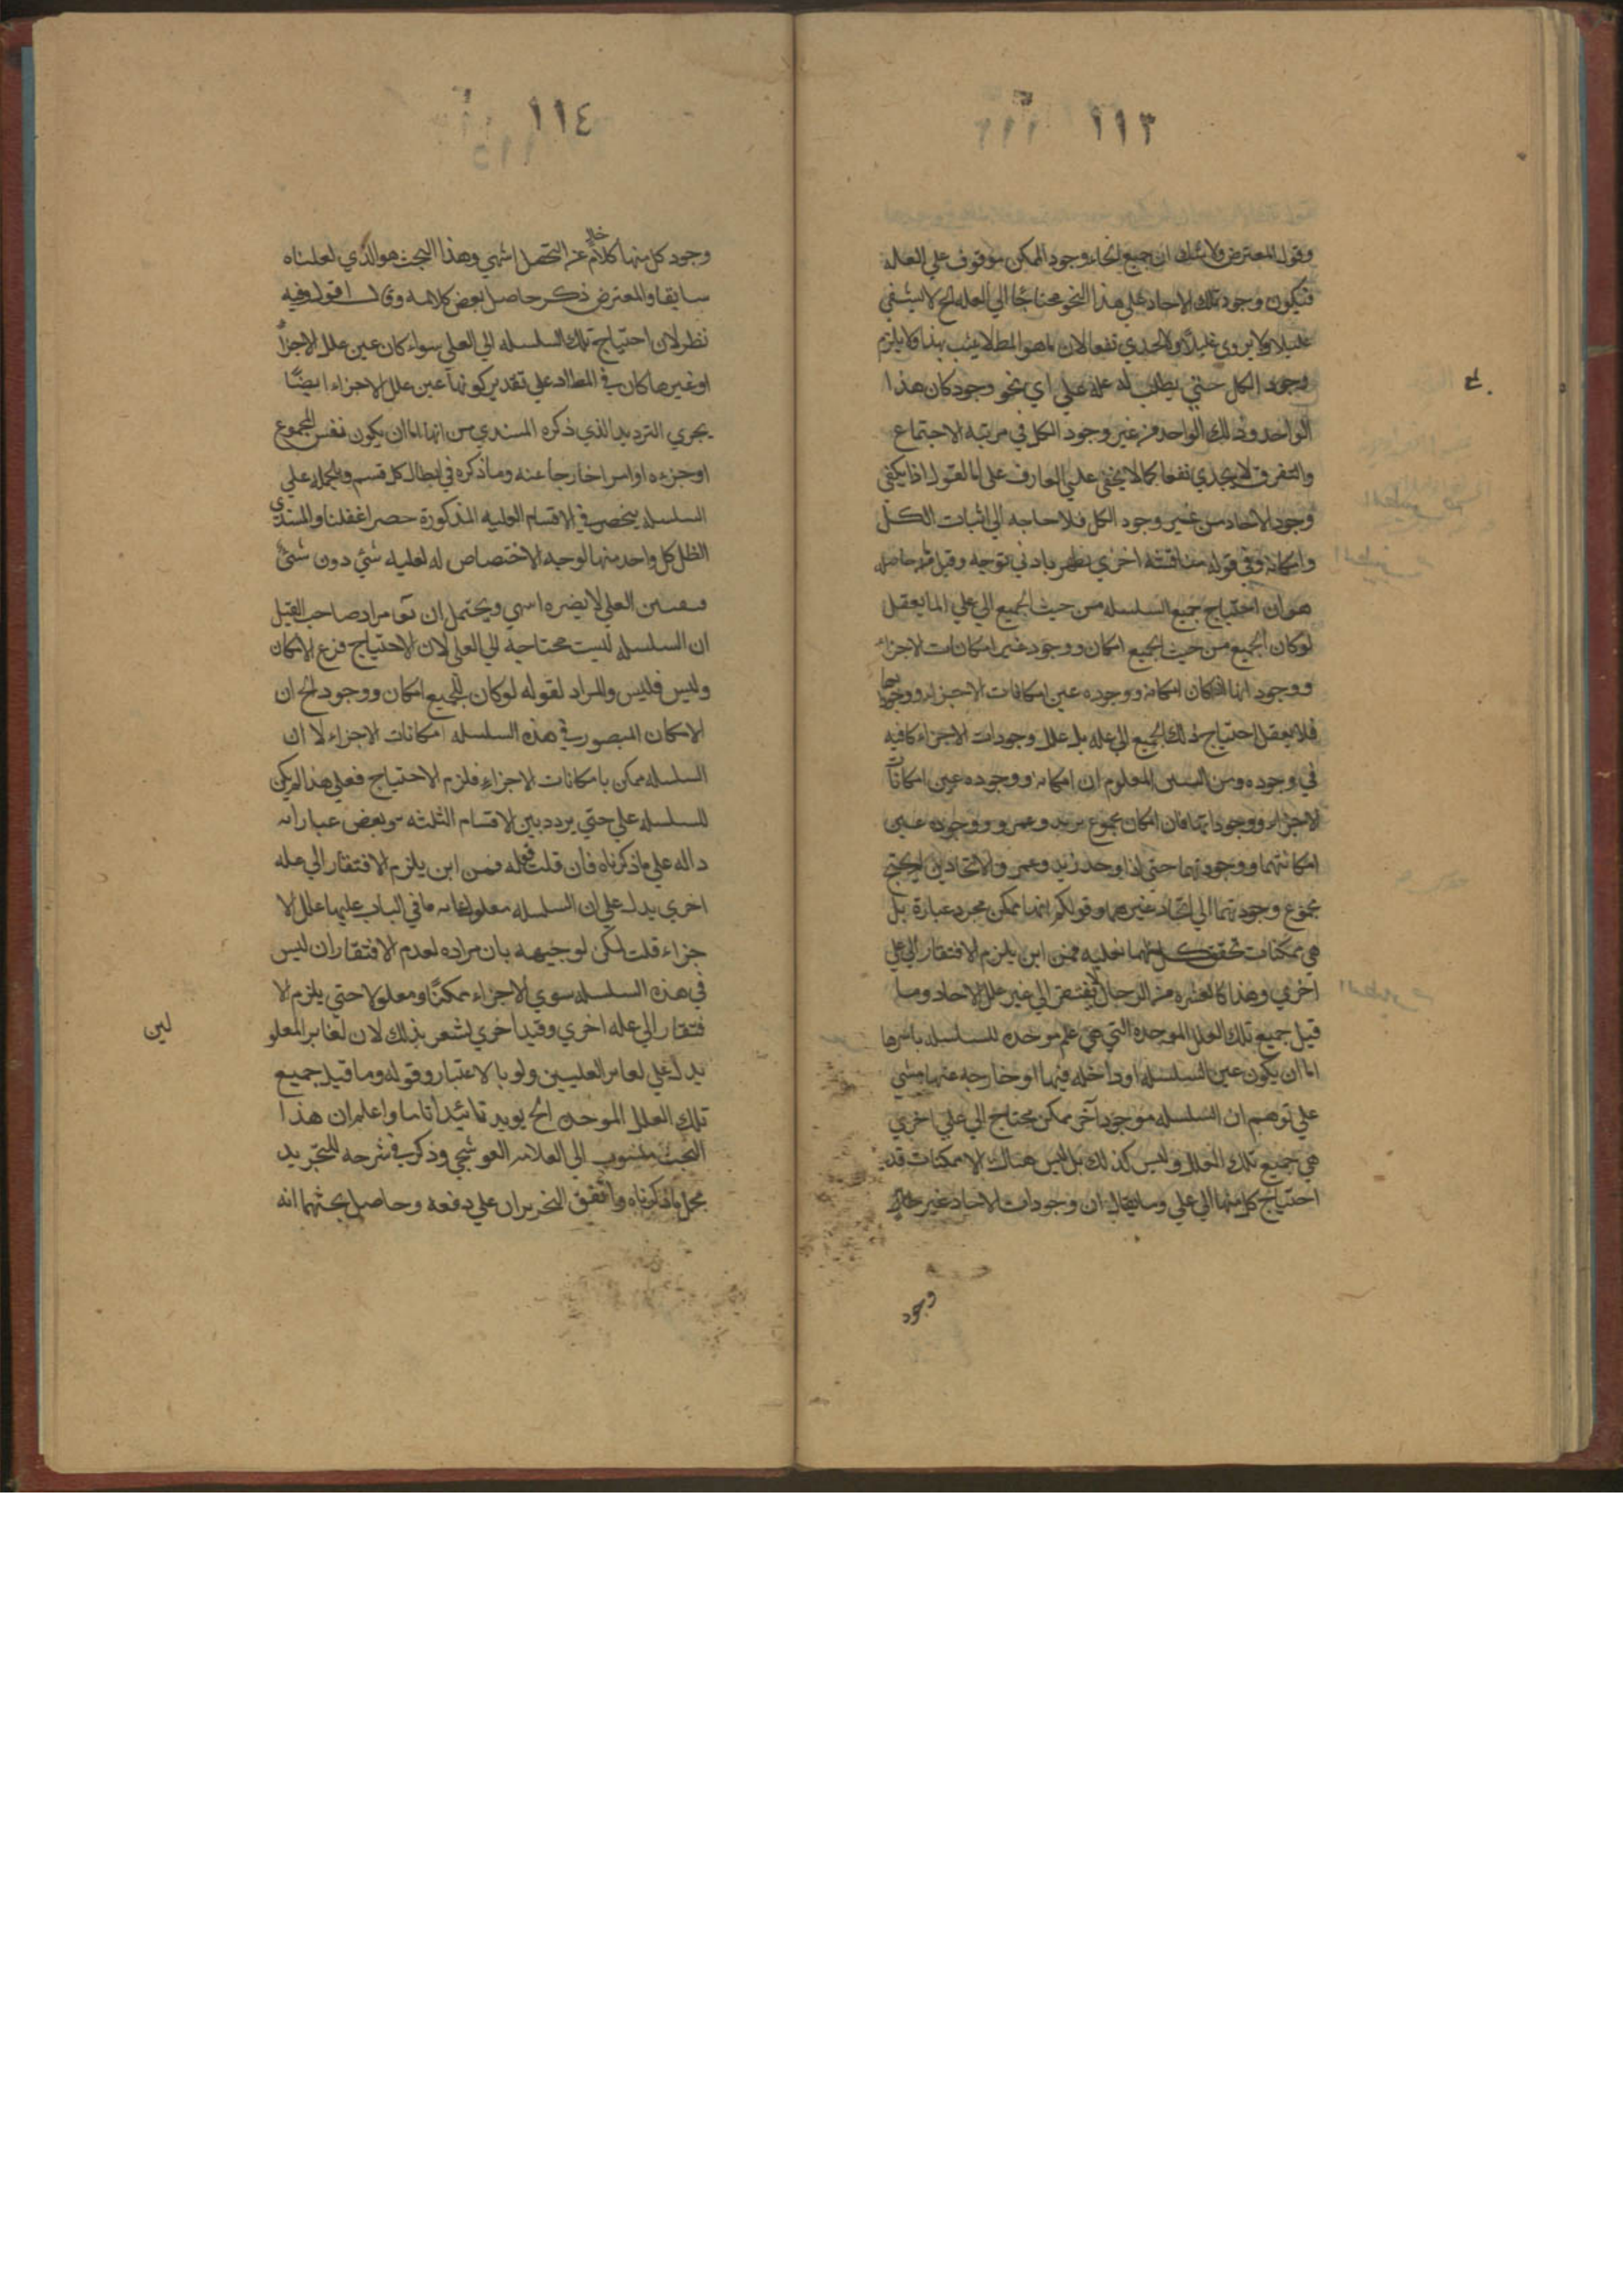 ١١٣
وقول المعترض ولا شك ان جميع انحاء وجود الممكن موقوف علي العله
فيكون وجود تلك الاحاد علي هذا النحو محتاجا الي العله الخ لا يشفي
عليلا ولا يروي غليلا ولا يجدي نفعا لان ما هو المط لا يثبت بهذا فلا يلزم
وجود الكل حتي يطلب له علة علي اي نحو وجود كان هذا
الواحد وذلك الواحد من غير وجود الكل في مرتبة الاجتماع
والتفرق لا يجدي نفعا كما لا يخفي علي العارف علي انا لقول اذا يكفي
وجود الاحاد من غير وجود الكل فلا حاجه الي اثبات الكل
وامكانه وفي قوله مناقشة اخري تظهر بادني توجه وقيل حاصله
هو ان احتياج جميع السلسله من حيث الجميع الي علي انما يعقل
لو كان الجميع من حيث الجميع امكان ووجود غير امكانات الاجزاء
ووجود اتها اذا كان امكانه ووجوده عين امكانات الاجزاء ووجوداتها
فلا يعقل احتياج ذلك الجميع الي عله بل علل وجودات الاجزاء كافيه
في وجوده ومن البين المعلوم ان امكانه ووجوده عين امكانات
الاجزاء ووجوداتها فان امكان مجموع زيد وعمرو ووجوده عين
امكانتهما ووجودتهما حتي اذا وجد زيد وعمر والاتحادين لم يحتج
مجموع وجودتهما الي اتحاد غيرهما وقولكم انها ممكن مجرد عبارة بل
هي ممكنات تحقق كل منهما بعليه فمن اين يلزم الافتقار الي علي
اخري وهذا كالعشره من الرجال لا يفتقر الي غير علل الاحاد وما
قيل جميع تلك العلل الموجده التي هي علم موجده للسلسله باسرها
اما ان يكون عين السلسله او داخله فيها او خارجه عنها مبني
علي توهم ان السلسله موجود آخر ممكن محتاج الي علي اخري
هي جميع تلك العلل وليس كذلك بل ليس هناك الا ممكنات قد
احتياج كل منها الي علي وما يقال ان وجودات الاحاد غير
وجود
١١٤
وجود كل منها كلام خال عن التحصل انتهي وهذا البحث هو الذي لعلناه
سابقا والمعترض ذكر حاصل بعض كلامه وقال اقول وفيه
نظر لان احتياج تلك السلسله الي العلي سواء كان عين علل الاجزاء
او غيرها كان في المطا اد علي تقدير كونها عين علل الاجزاء ايضًا
يجري الترديد الذي ذكره المستدي من انها اما ان يكون نفس المجموع
او جزءه او امرا خارجا عنه وما ذكره في ابطال كل قسم وبالجمله علي
السلسله ينحصر في الاقسام المذكورة حصر اغفلنا والمستدي
الظل كل واحد منها لوجه الاختصاص له لعليه شئ دون شئ
العلي لا يضره انتهي ويحتمل ان مراد صاحب القيل
ان السلسله ليست محتاجه الي العلي لان الاحتياج فرع الامكان
وليس فليس والمراد لقوله لو كان للجميع امكان ووجود الخ ان
الامكان المتصور في هذه السلسله امكانات الاجزاء لا ان
السلسله ممكن بامكانات الاجزاء فلزم الاحتياج فعلي هذا لم يكن
للسلسله علي حتي يردد بين الاقسام الثلثه وبعض عباراته
داله علي ما ذكرناه فان قلت قوله فمن اين يلزم الافتقار الي عله
اخري يدل علي ان السلسله معلوله ما في الباب عليها علل الا
جزاء قلت لكن لوجيهه بان مراده لعدم الافتقار ان ليس
في هذه السلسله سوي الاجزاء ممكنًا ومعلولا حتي يلزم الا
فتقار الي عله اخري وقيد اخري لشعر بذلك لان لغاير المعلو
لين
يدل علي لعاير العليين ولو بالاعتبار وقوله وما قيل جميع
تلك العلل الموجده الخ يويد تائيدا تاما واعلم ان هذا
البحث منسوب الي العلامه القوشجي وذكر في شرحه للتجريد
مجمل ما ذكرناه وما تفق النحريران علي دفعه وحاصل بحثهما انه